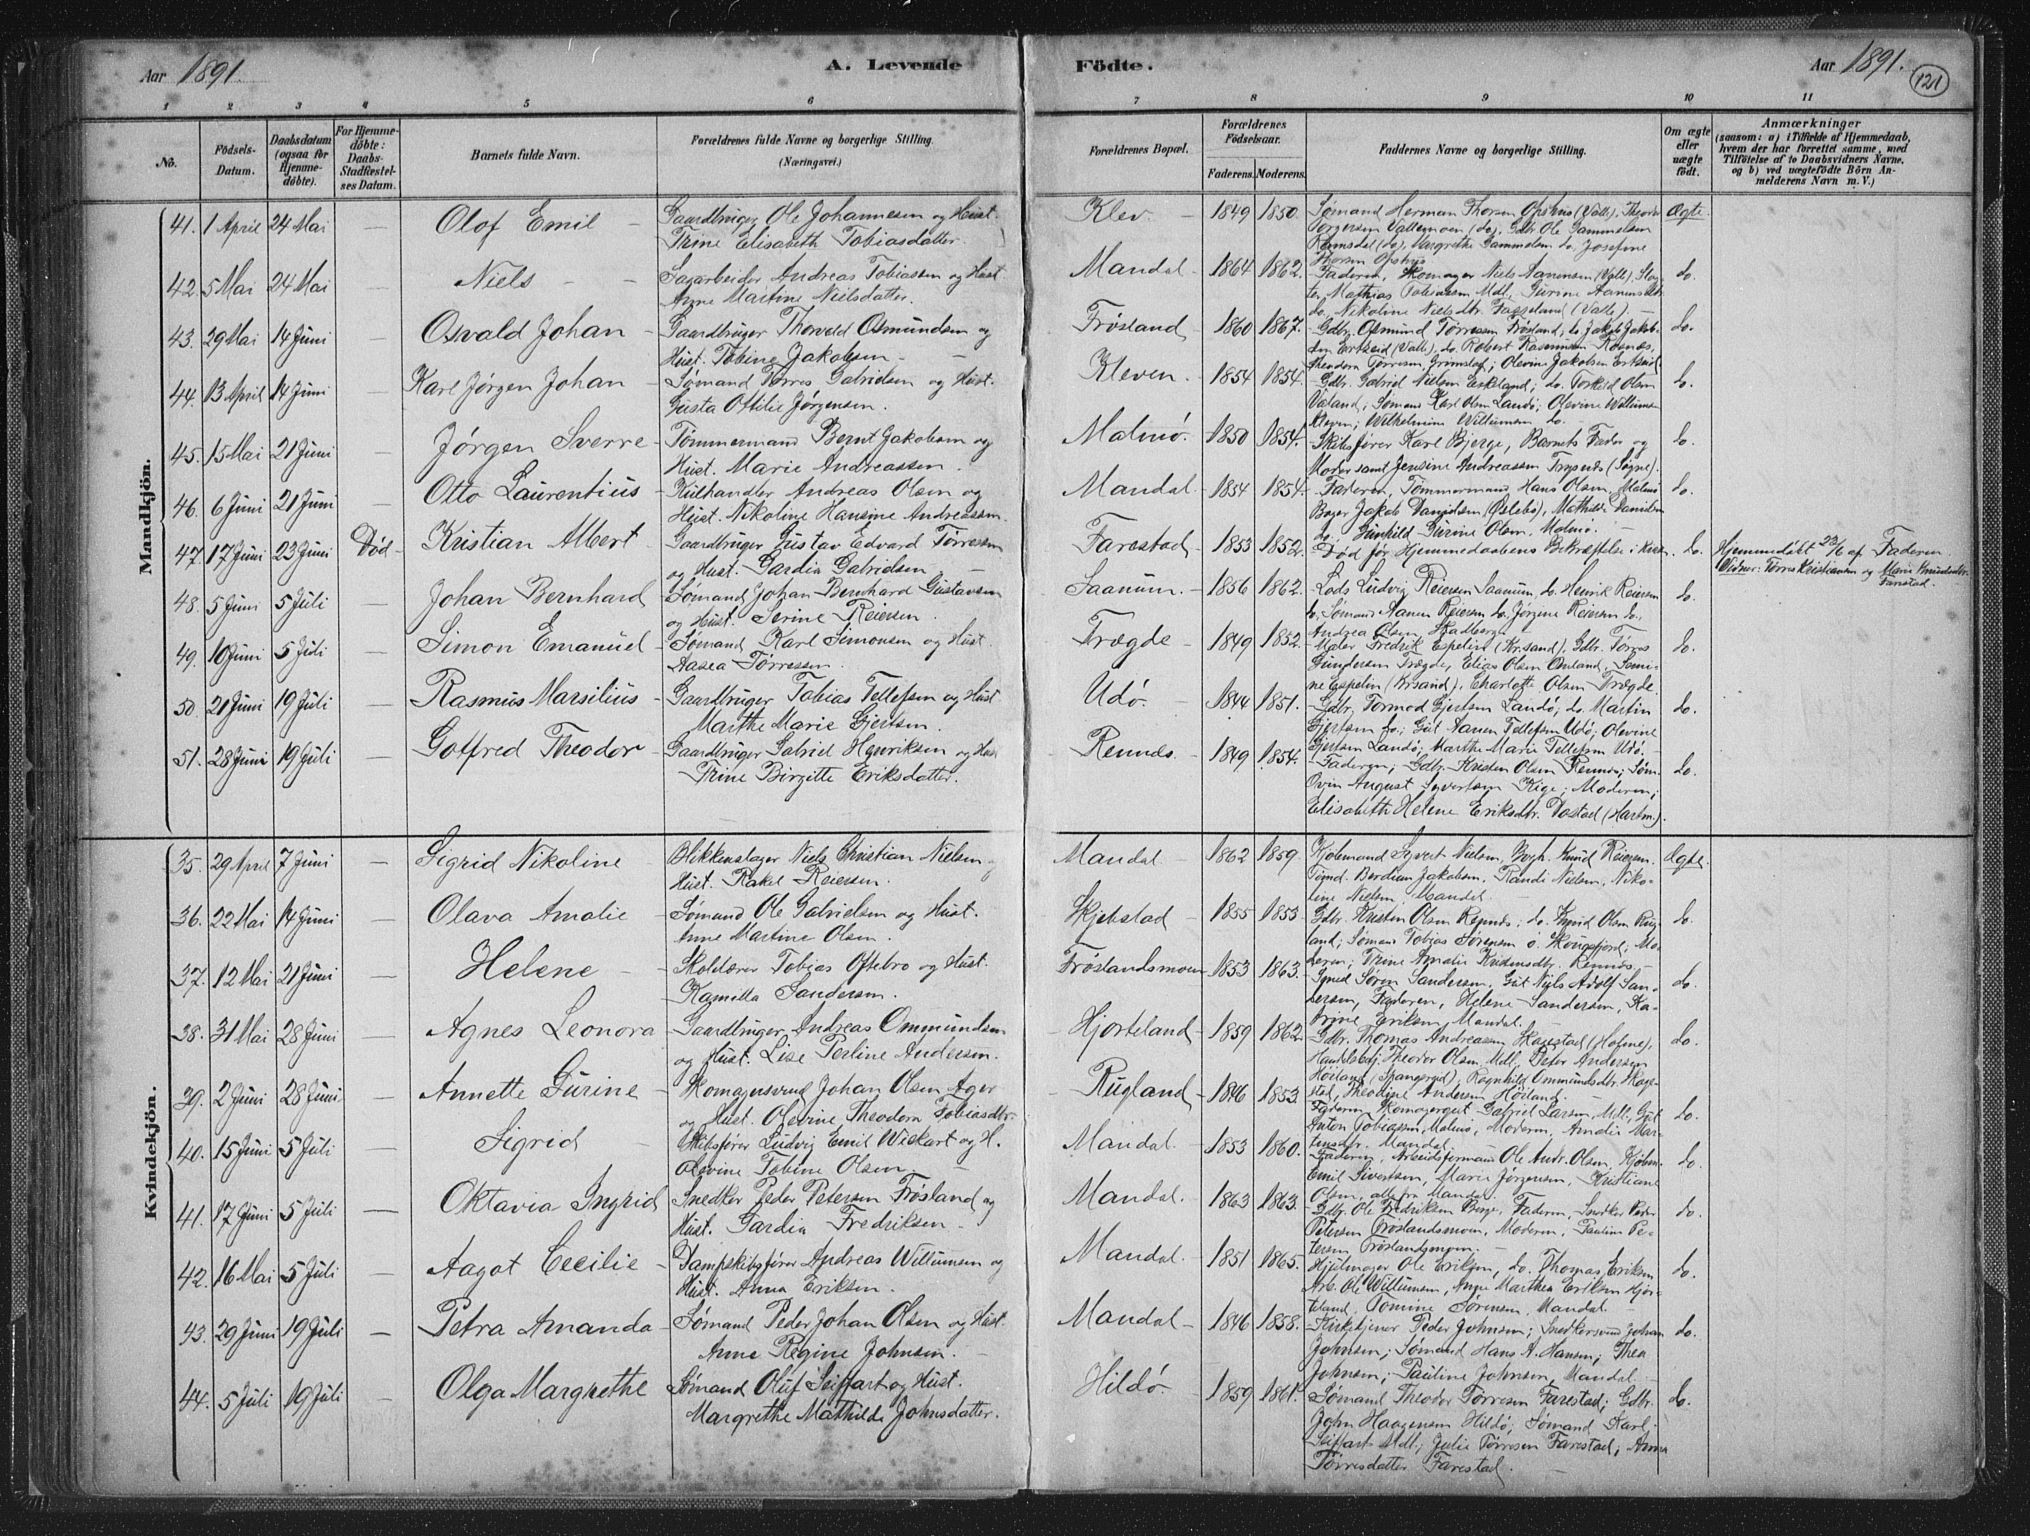 Aar 1891.
A. Levende
Födte.
Aar 1891.
121
1 2 3 4 5 6 7 8 9 10 11
No.
Födsels-Datum.
Daabsdatum (ogsaa for Hjemme-döbte).
For Hjemme-döbte: Daabs-Stadfæstel-ses Datum.
Barnets fulde Navn.
Forældrenes fulde Navne og borgerlige Stilling. (Næringsvei.)
Forældrenes Bopæl.
Forældrenes Födselsaar.
Faderens. Moderens.
Faddernes Navne og borgerlige Stilling.
Om ægte eller uægte født.
Anmærkninger
(saasom: a) i Tilfælde af Hjemmedaab, hvem der har forrettet samme, med Tilföielse af to Daabsvidners Navne, og b) ved uægtefödte Börn An-melderens Navn m. V.)
Mandkjön.
41. 1 April 24 Mai — Olof Emil — Gaardbruger Ole Johannesen og Hust. Trine Elisabeth Tobiasdatter. Klev. 1849 1850. Sømand Herman Thorsen Ægte.
42. 5 Mai 24 Mai — Niels — Sagarbeider Andreas Tobiassen og Hust. Anne Martine Nielsdatter. Mandal 1864 1862. Faderen, Skomager Niels do.
43. 29 Mai 14 Juni — Osvald Johan — Gaardbruger Thorvald Osmundsen og Hust. Tobine Jakobsen. Frøsland 1860 1867. Gdbr. Osmund Tørresen Frøsland, do.
44. 13 April 14 Juni — Karl Jørgen Johan — Sømand Tørres Gabrielsen og Hust. Gusta Ottilie Jørgensen. Kleven. 1854 1854. Gdbr. Gabriel Nielsen do.
45. 15 Mai 21 Juni — Jørgen Sverre — Tømmermand Bernt Jakobsen og Hust. Marie Andreassen. Malmø. 1850 1854. Skibsfører Karl Bjerge, Barnets Fader og Moder samt Jensine Andreassen Trysnes (Søgne). do.
46. 6 Juni 21 Juni — Otto Laurentius — Kulhandler Andreas Olsen og Hust. Nikoline Hansine Andreassen. Mandal 1854 1854. Faderen, Tømmermand Hans Olsen, Malmø do. Gunhild Gurine Olsen, Malmø. do.
47. 17 Juni 23 Juni Død Kristian Albert — Gaardbruger Gustav Edvard Tørresen og Hust. Gardia Gabrielsen — Farestad 1853 1852. Død før Hjemmedaabens Bekræftelse i Kirken. do. Hjemmedøbt 23/6 af Faderen. Vidner: Tørres Kristiansen og Marie Knudsdtr. Farestad.
48. 5 Juni 5 Juli — Johan Bernhard Sømand Johan Bernhard Gustavsen og Hust. Serine Reiersen. Saanum. 1856 1862. Lods Ludvig Reiersen Saanum, do. Henrik Reiersen do., Sømand Aanen Reiersen do., Jørgine Reiersen do., do.
49. 10 Juni 5 Juli — Simon Emanuel Sømand Karl Simonsen og Hust. Aasea Tørressen. Trægde 1849 1852. Maler Fredrik Espelin (Kr.sand), Gdbr. Tørres Gundersen Trægde, Elias Olsen (Kr.sand), Charlotte Olsen Trægde. do.
50. 21 Juni 19 Juli — Rasmus Marsilius — Gaardbruger Tobias Tellefsen og Hust Marthe Marie Gjertsen. Udø. 1844 1851. Gdbr. Tormod Gjertsen Landø, do. Martin Gjertsen do.; Gut Aanen Tellefsen Udø, Olevine Gjertsen Landø, Marthe Marie Tellefsen Udø. do.
51. 28 Juni 19 Juli — Gotfred Theodor — Gaardbruger Gabriel Henriksen og Hust Trine Birgitte Eriksdatter. Rennes. 1849 1854. Faderen; Gdbr. Kristen Olsen Rennes; August Syvertsen Kige; Moderen; Elisabeth Helene Eriksdtr. do.
Kvindekjön.
35. 29 April 7 Juni — Sigrid Nikoline Blikkenslager Niels Christian Nielsen Hust. Rakel Reiersen. Mandal — 1862 1859. Kjøbmand Syvert Nielsen, Knud Reiersen, Jakobsen, Randi Nielsen, Nikoline Nielsen, Mandal. Ægte.
36. 22 Mai 14 Juni — Olava Amalie — Sømand Ole Gabrielsen og Hust. Anne Martine Olsen. Skjebstad 1855 1853. Gdbr. Kristen Olsen Rennes; Sømand Tobias Sørensen Moderen; Trine Amalie Rennes. do.
37. 12 Mai 21 Juni — Helene — Skolelærer Tobias Oftebro og Hust. Kamilla Sandersen. Frøslandsmoen 1853 1863. Søren Sandersen, Gut Nils Adolf Sandersen, Faderen, Helene Sandersen, Katrine Eriksen Mandal. do.
38. 31 Mai 28 Juni — Agnes Leonora Gaardbruger Andreas Ommundsen og Hust. Lise Perline Andersen. Hjorteland 1859 1862. Gdbr. Thomas Andreassen Theodor Olsen, Mdl, Peter Andersen Andersen Høiland. do.
39. 2 Juni 28 Juni — Annette Gurine Skomagersvend Johan Olsen Ager og Hust. Olevine Theodora Tobiasdtr. Rugland 1846 1853. Faderen, Gabriel Larsen, Mdl, Gut Anton Tobiassen, Malmø, Moderen, Amalie Mandal. do.
40. 15 Juni 5 Juli — Sigrid — Skibsfører Ludvig Emil Wiekart og H. Olevine Tobine Olsen. Mandal 1853 1860. Faderen, Arbeidsformand Ole Andr. Olsen, Kjøbm. Emil Sivertsen, Marie Jørgensen, Kristiane Olsen, alle fra Mandal. do.
41. 17 Juni 5 Juli — Oktavia Ingrid Snedker Peder Petersen Frøsland og Hust. Gardia Fredriksen. Mandal. 1863 1863. Gdbr. Ole Fredriksen Berge, Faderen, Snedker Peder Petersen Frøslandsmoen, Moderen, Pauline Petersen, Frøslandsmoen. do.
42. 16 Mai 5 Juli — Aagot Cecilie — Dampskibsfører Andreas Willumsen og Hust. Anna Eriksen. Mandal. 1851 1865. Hjulmager Ole Eriksen, do. Thomas Eriksen, Arb. Ole Willumsen, Anne Marthea Eriksen Hjorteland, Tomine Sørensen, Mandal. do.
43. 29 Juni 19 Juli — Petra Amanda — Sømand Peder Johan Olsen og Hust. Anne Regine Johnsen. Mandal 1846 1858. Kirketjener Peder Johnsen; Snedkersvend Johan Johnsen; Sømand Hans A. Hansen; Thea Johnsen; Pauline Johnsen, Mandal. do.
44. 5 Juli 19 Juli — Olga Margrethe Sømand Oluf Seiffart og Hust. Margrethe Mathilde Johnsdatter. Hildø. 1859 1861. Sømand Theodor Tørresen Farestad; Gdbr. John Haagensen Hildø; Sømand Karl Seiffart Mdl; Julie Tørresen Farestad; Anna Tørresdatter Farestad. do.